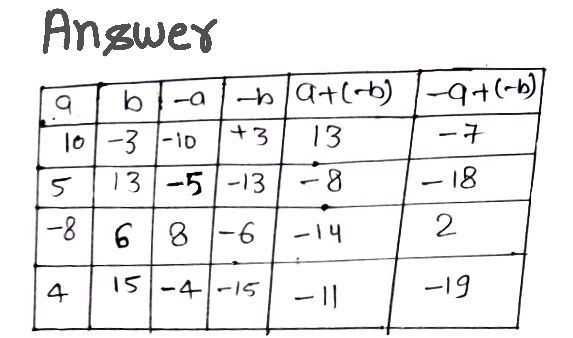 Answer
a b -a -b a+(-b) -a+(-b)
10 -3 -10 +3 13 -7
5 13 -5 -13 -8 -18
-8 6 8 -6 -14 2
4 15 -4 -15 -11 -19